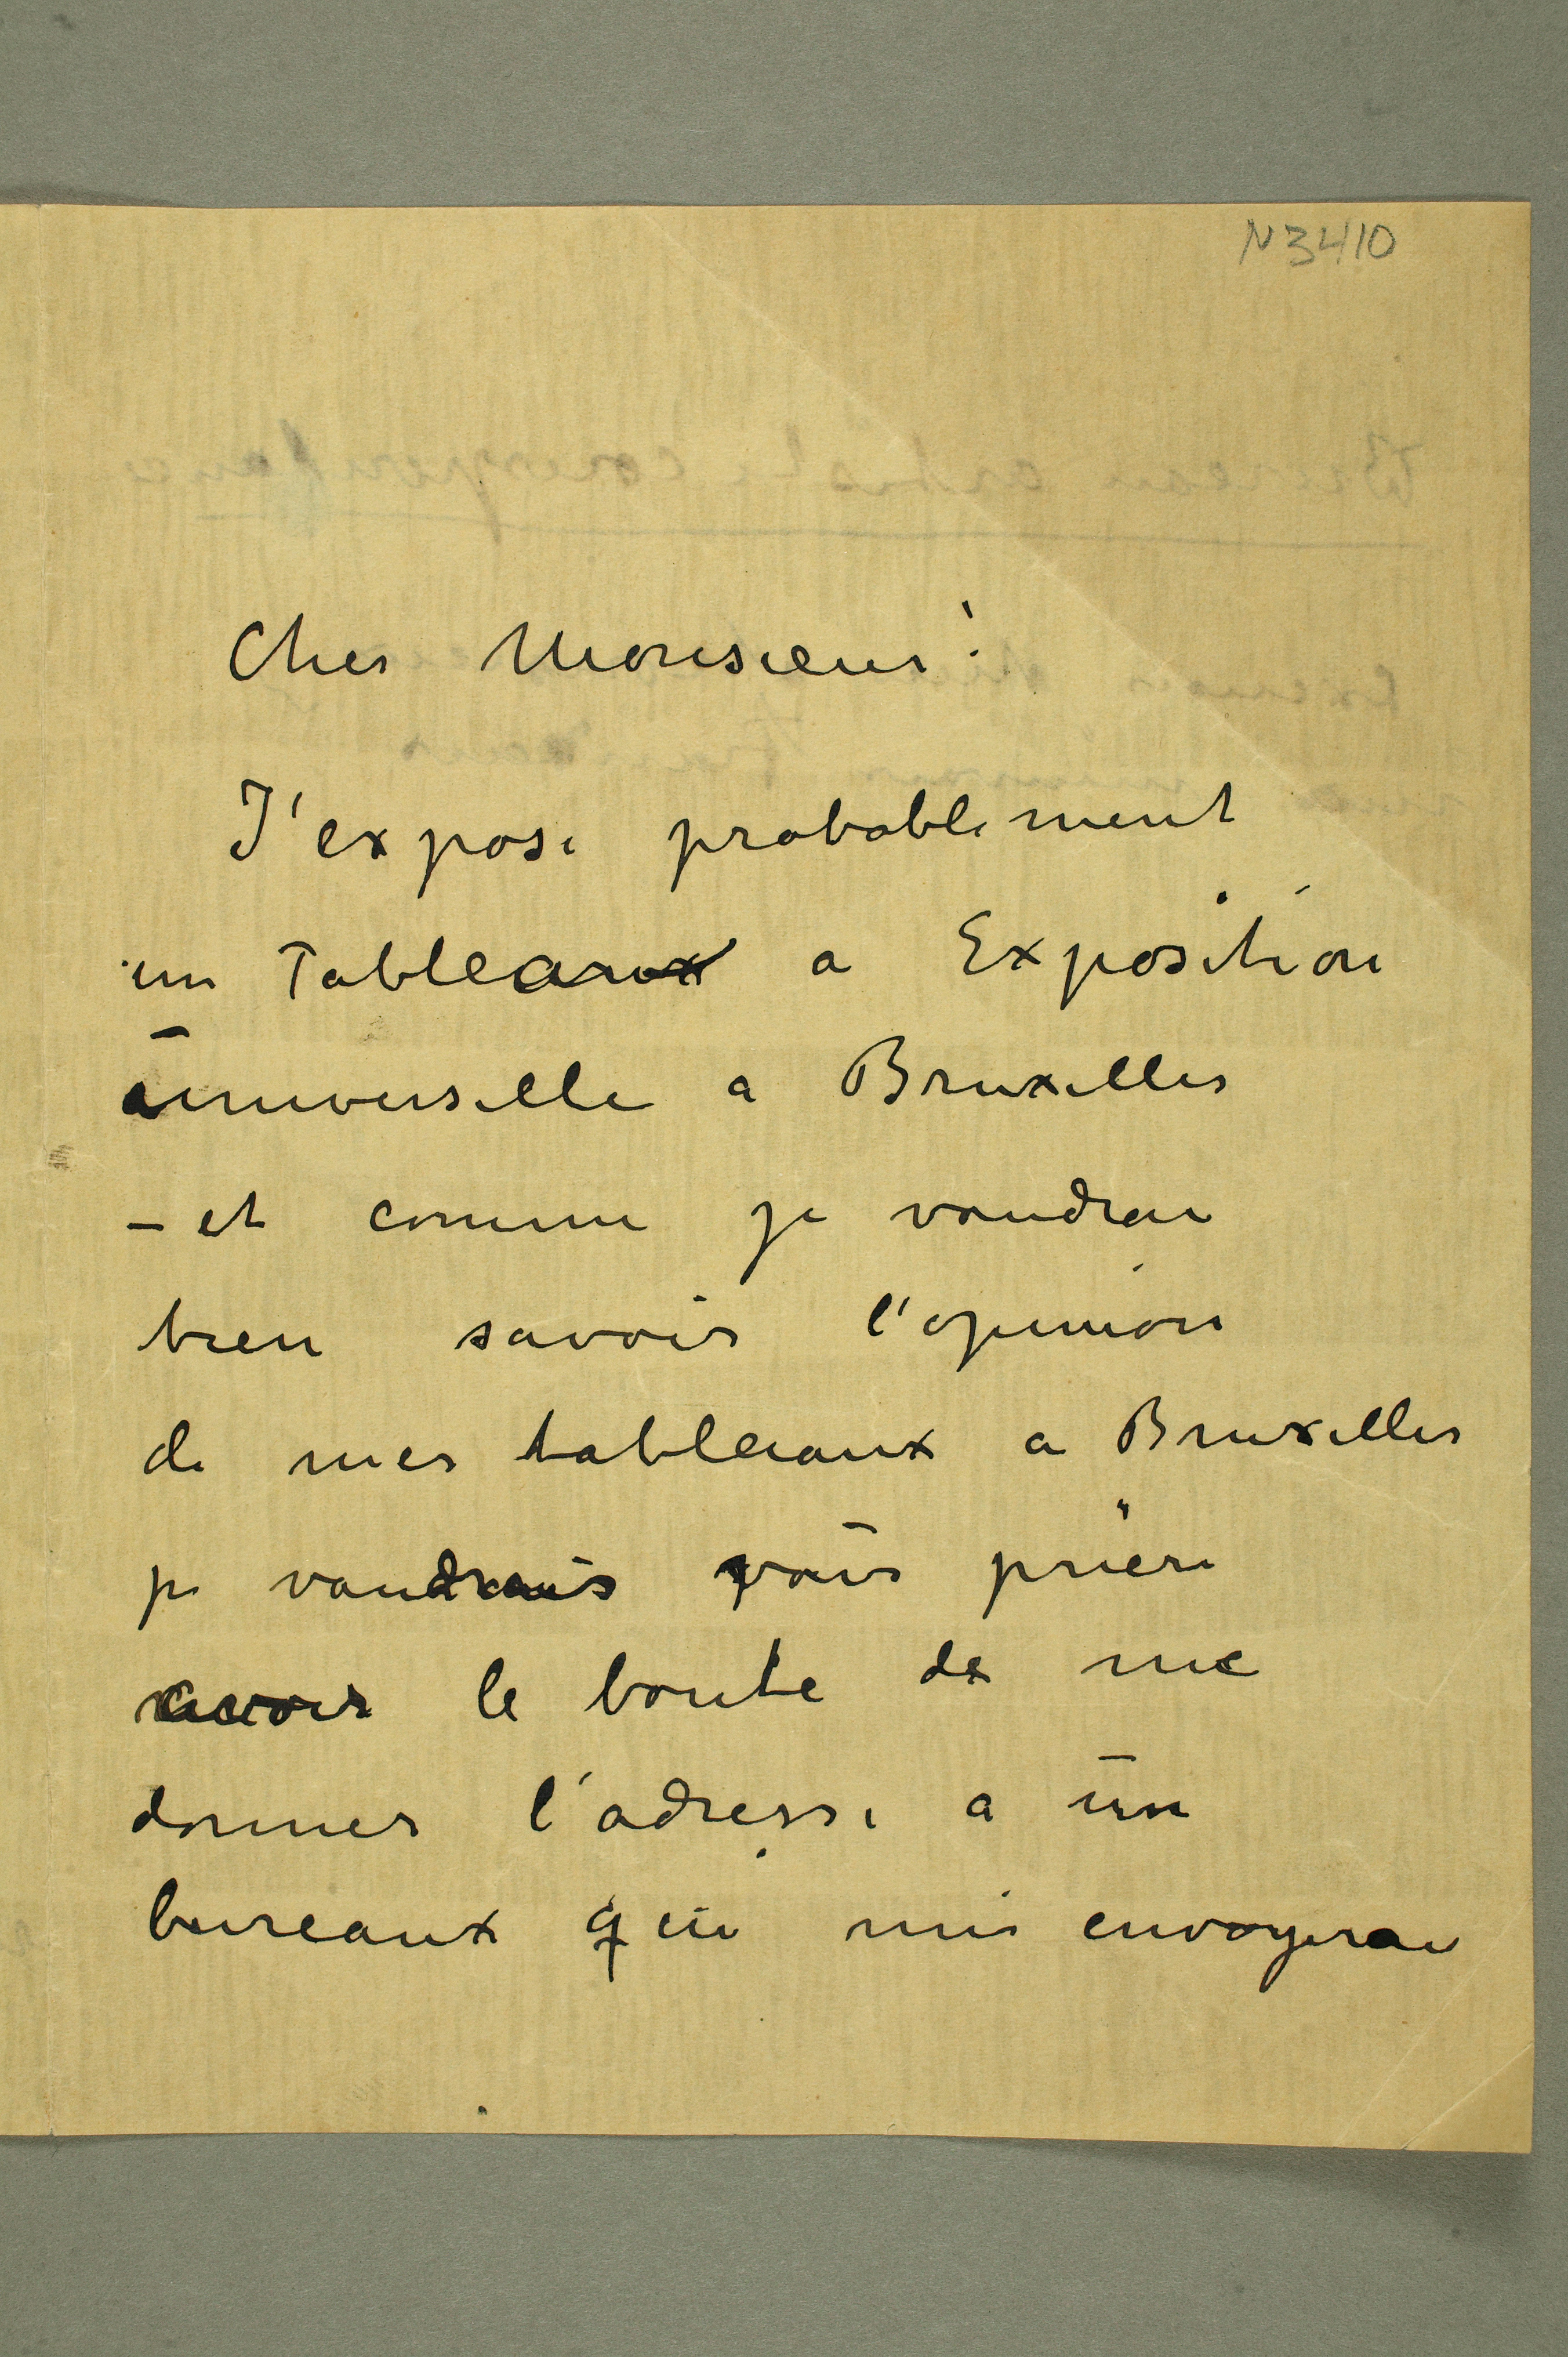 N3410
Cher Monsieur!
J'expose probablement
un Tableaux a Exposition
universelle a Bruxelles
– et comme je voudrai
bien savoir l'opinion
de mes tableaux a Bruxelles
je voudrais vous prière
avoir le bonté de me
donner l'adresse a un
bureaux qui me envoyerai